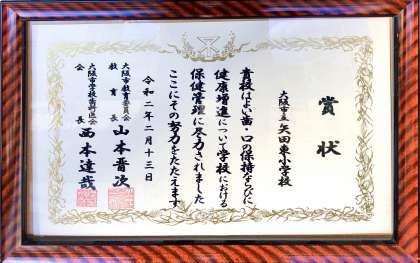 賞状
大阪市立矢田東小学校
貴校はよい歯・口の保持ならびに
健康増進について学校における
保健管理に尽力されました
ここにその努力をたたえます
令和二年二月十三日
大阪市教育委員会
教育長 山本晋次
大阪市学校歯科医会
会長 西本達哉